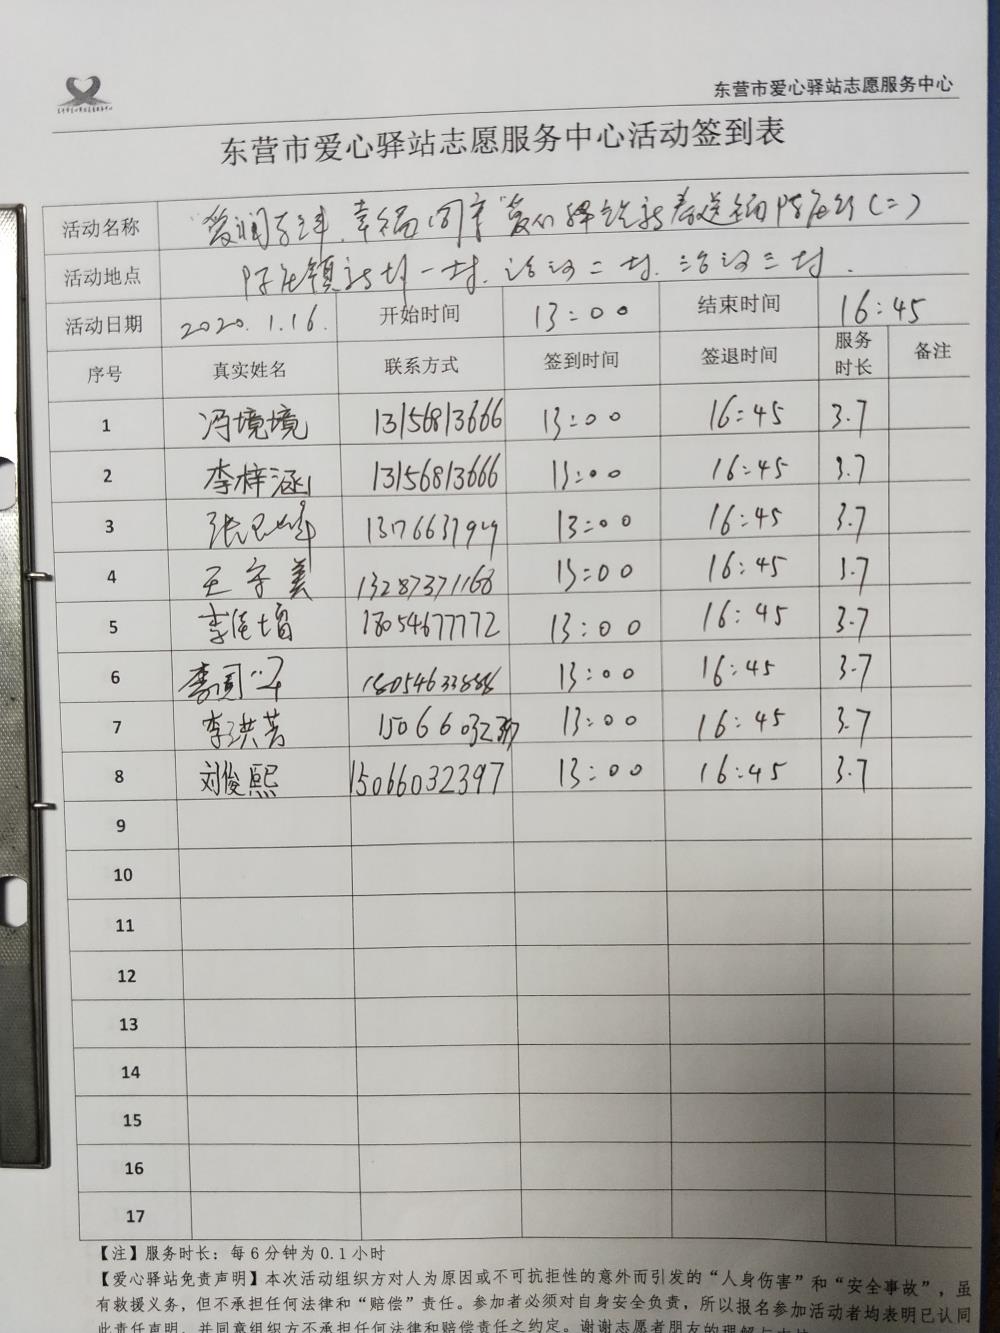 东营市爱心驿站志愿服务中心
东营市爱心驿站志愿服务中心活动签到表
活动名称 幸福 爱心驿站 春送福 (二)
活动地点 镇 一村. 二村. 三村.
活动日期 2020.1.16. 开始时间 13:00 结束时间 16:45
序号 真实姓名 联系方式 签到时间 签退时间 服务时长 备注
1 冯境境 13156813666 13:00 16:45 3.7
2 李梓涵 13156813666 13:00 16:45 3.7
3 张 13:00 16:45 3.7
4 王宇美 13287371168 13:00 16:45 3.7
5 李 18054677772 13:00 16:45 3.7
6 李 13:00 16:45 3.7
7 李洪芳 13:00 16:45 3.7
8 刘俊熙 15066032397 13:00 16:45 3.7
9
10
11
12
13
14
15
16
17
【注】服务时长：每6分钟为0.1小时
【爱心驿站免责声明】本次活动组织方对人为原因或不可抗拒性的意外而引发的“人身伤害”和“安全事故”，虽
有救援义务，但不承担任何法律和“赔偿”责任。参加者必须对自身安全负责，所以报名参加活动者均表明已认同
此责任声明，并同意组织方不承担任何法律和赔偿责任之约定。谢谢志愿者朋友的理解与